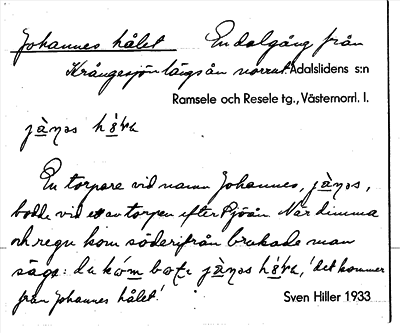 Johannes hålet En dalgång från
Krångesjön längs ån norrut. Ådalslidens s:n
Ramsele och Resele tg., Västernorrl. l.
En torpare vid namn Johannes,
bodde vid ett av torpen efter Sjöån När dimma
och regn kom söderifrån brukade man
säga: 'det kommer
från Johannes hålet'. Sven Hiller 1933